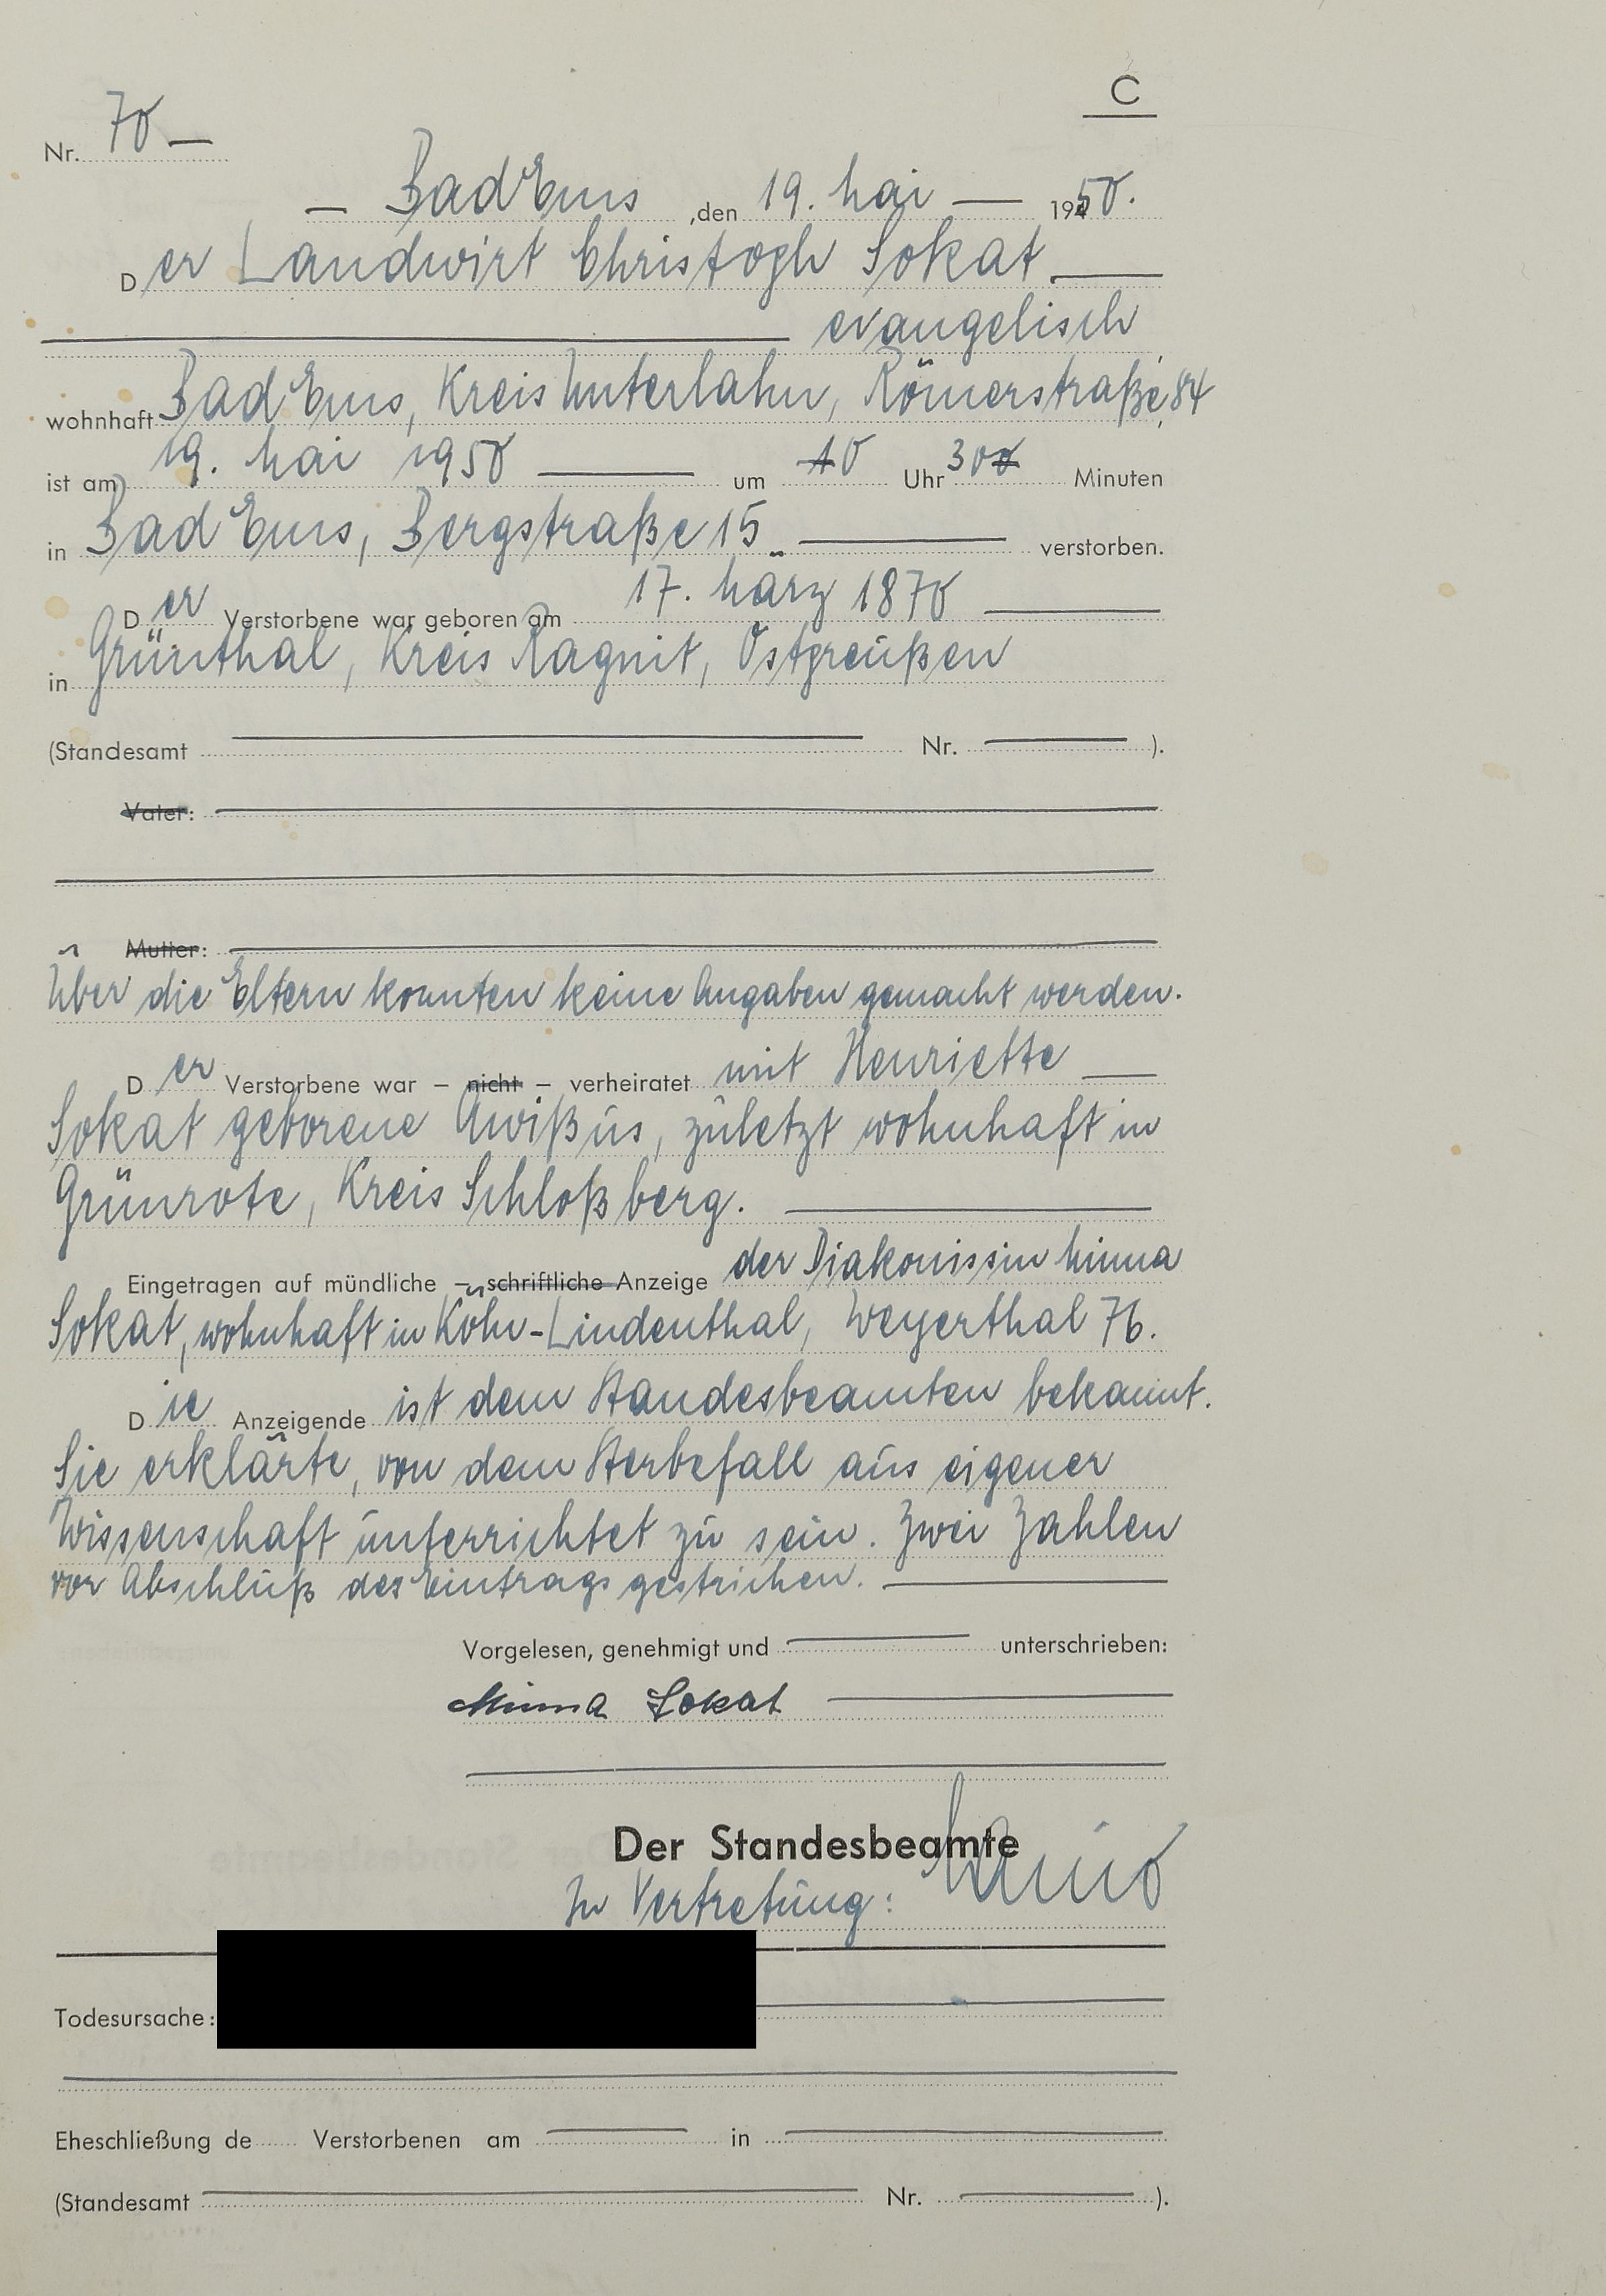 C
Nr. 70 —
— Bad Ems, den 19. Mai — 1950.
Der Landwirt Christoph Sokat —
— evangelisch
wohnhaft Bad Ems, Kreis Unterlahn, Römerstraße, 84
ist am 19. Mai 1950 — um 10 Uhr 300 Minuten
in Bad Ems, Bergstraße 15 — verstorben.
Der Verstorbene war geboren am 17. März 1870 —
in Grünthal, Kreis Ragnit, Ostpreußen
(Standesamt — Nr. — ).
Vater: —
Mutter: —
Über die Eltern konnten keine Angaben gemacht werden.
Der Verstorbene war – nicht – verheiratet mit Henriette —
Sokat geborene Awißus, zuletzt wohnhaft in
Grünrote, Kreis Schloßberg. —
Eingetragen auf mündliche – schriftliche – Anzeige der Diakonissin Minna
Sokat, wohnhaft in Köln-Lindenthal, Weyerthal 76.
Die Anzeigende ist dem Standesbeamten bekannt.
Sie erklärte, von dem Sterbefall aus eigener
Wissenschaft unterrichtet zu sein. Zwei Zahlen
vor Abschluß des Eintrags gestrichen. —
Vorgelesen, genehmigt und — unterschrieben:
Minna Sokat —
Der Standesbeamte
In Vertretung:
Todesursache:
Eheschließung de Verstorbenen am — in —
(Standesamt — Nr. — ).